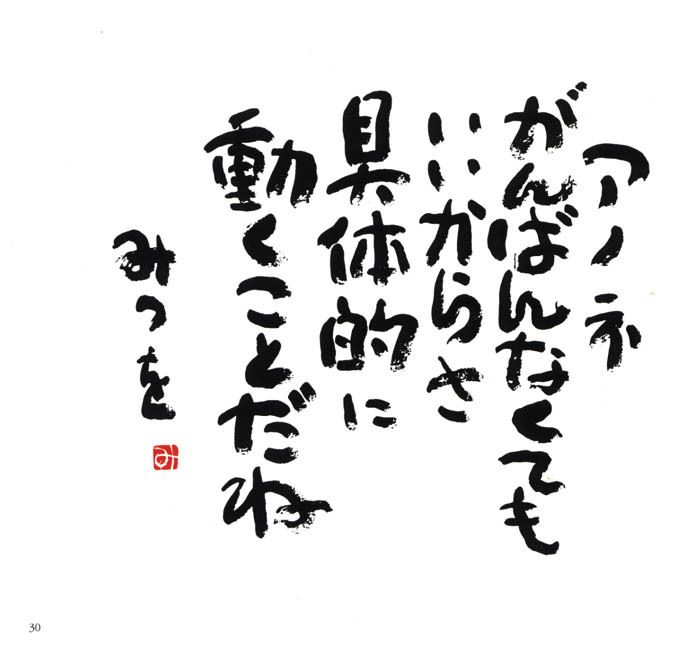 アノネ
がんばんなくても
いいからさ
具体的に
動くことだね
みつを
み
30